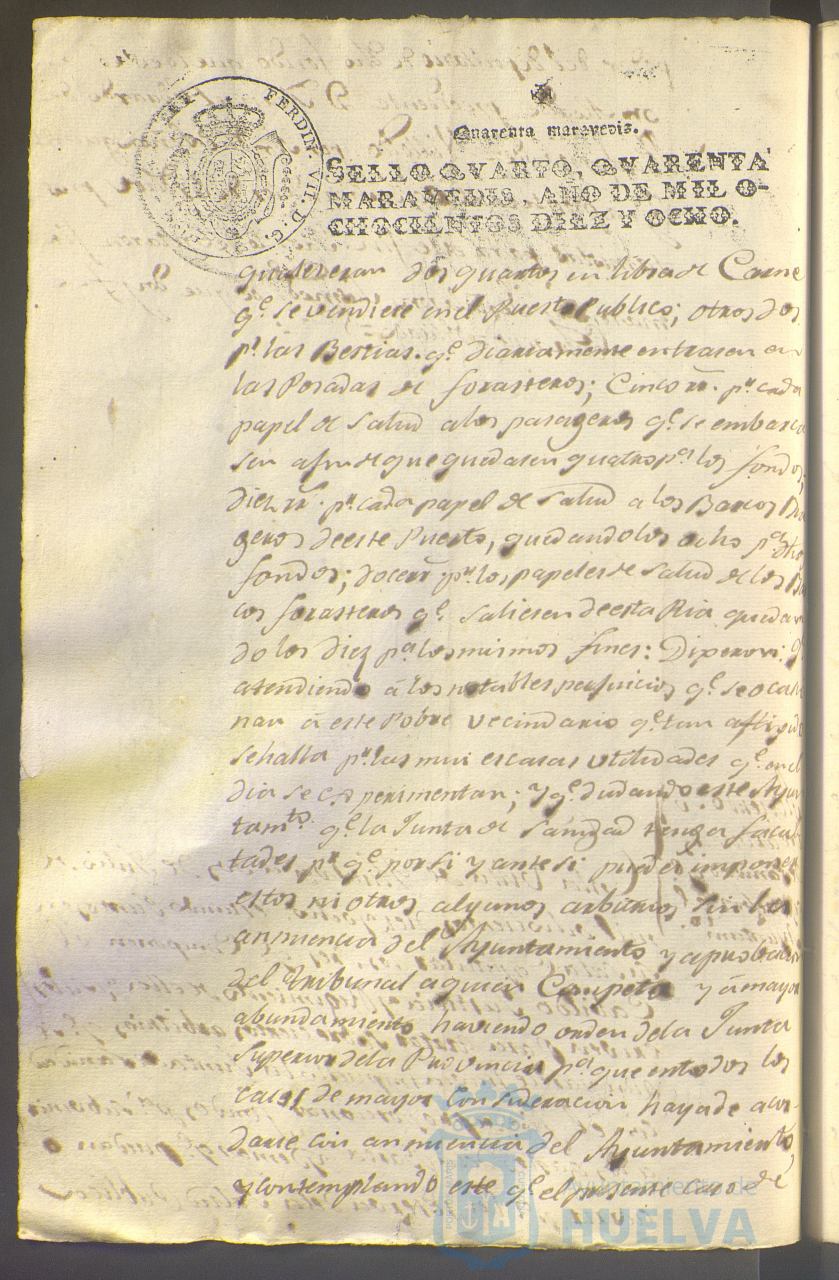 FERDIN. VII. D. G.
Quarenta maravedis.
SELLO QVARTO, QVARENTA
MARAVEDIS, AÑO DE MIL O-
CHOCIENTOS DIEZ Y OCHO.
quales eran dos quartos en libra de Carne
q.e se vendiere en el Puesto Publico; otros dos
p.r las Bestias q.e diariamente entrasen en
las Posadas de forasteros; Cinco rr. p.r cada
papel de Salud a los pasageros q.e se embarca
sen a fin de que quedasen quatro p.a los fondos;
diez rr. p.r cada papel de Salud a los Barcos
geros de este Puerto, quedandolos ocho p.a otros
fondos; doce rr. p.r los papeles de Salud de los Ba
cos forasteros q.e saliesen de esta Ria quedan
dolos diez p.a los mismos fines: Dixeron: q.e
atendiendo á los notables perjuicios q.e se ocasio
nan á este Pobre Vecindario q.e tan afligido
se halla p.r las mui escasas utilidades q.e en el
dia se experimentan; y q.e dudando este Ayun
tam.to q.e la Junta de Sanidad tenga facul
tades p.a q.e por si y ante si pueda imponer
estos ni otros algunos arbitrios sin la
anuencia del Ayuntamiento y aprobacion
del Tribunal a quien Competa y á mayor
abundamiento haviendo orden de la Junta
Superior de la Provincia p.a que en todos los
casos de mayor Consideracion haya de acor
darse con anuencia del Ayuntamiento,
y contemplando este q.e el presente caso de
Ayuntamiento de
HUELVA